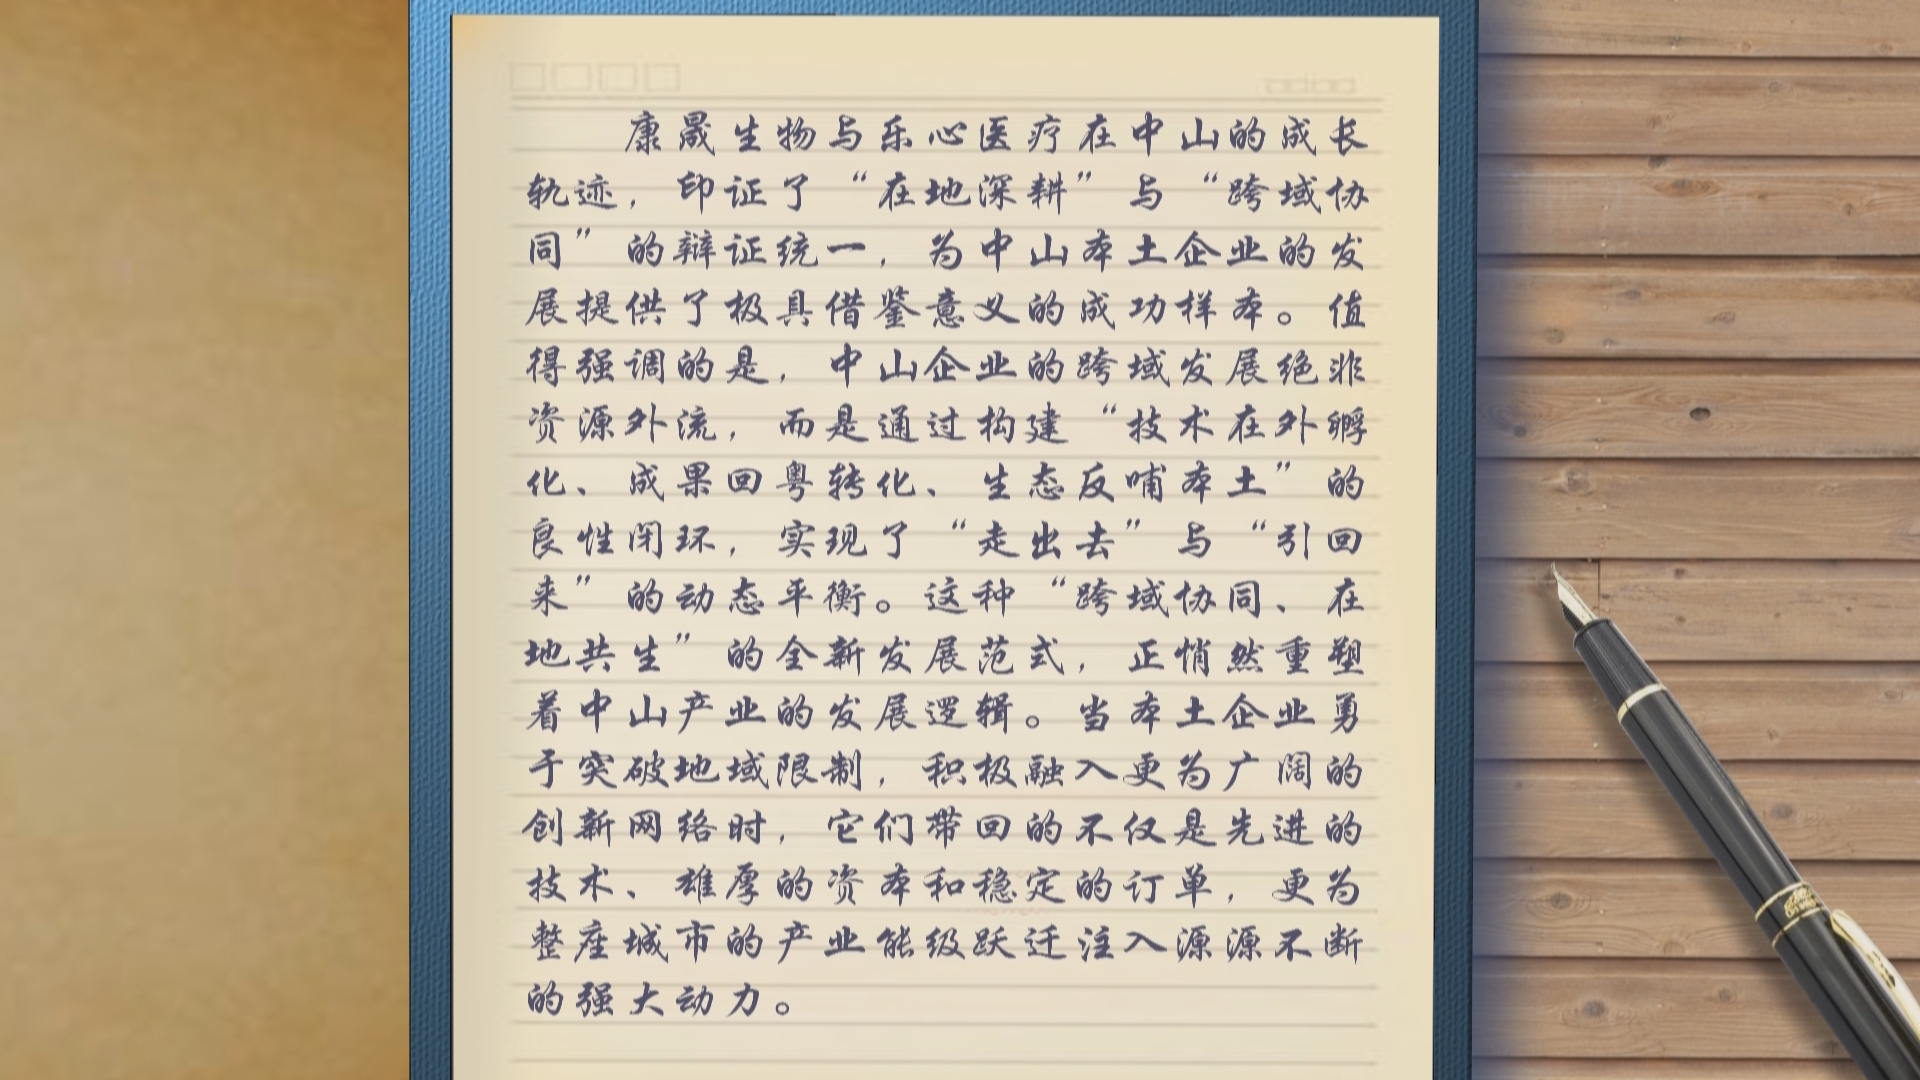 康晟生物与乐心医疗在中山的成长
轨迹，印证了“在地深耕”与“跨域协
同”的辩证统一，为中山本土企业的发
展提供了极具借鉴意义的成功样本。值
得强调的是，中山企业的跨域发展绝非
资源外流，而是通过构建“技术在外孵
化、成果回粤转化、生态反哺本土”的
良性闭环，实现了“走出去”与“引回
来”的动态平衡。这种“跨域协同、在
地共生”的全新发展范式，正悄然重塑
着中山产业的发展逻辑。当本土企业勇
于突破地域限制，积极融入更为广阔的
创新网络时，它们带回的不仅是先进的
技术、雄厚的资本和稳定的订单，更为
整座城市的产业能级跃迁注入源源不断
的强大动力。